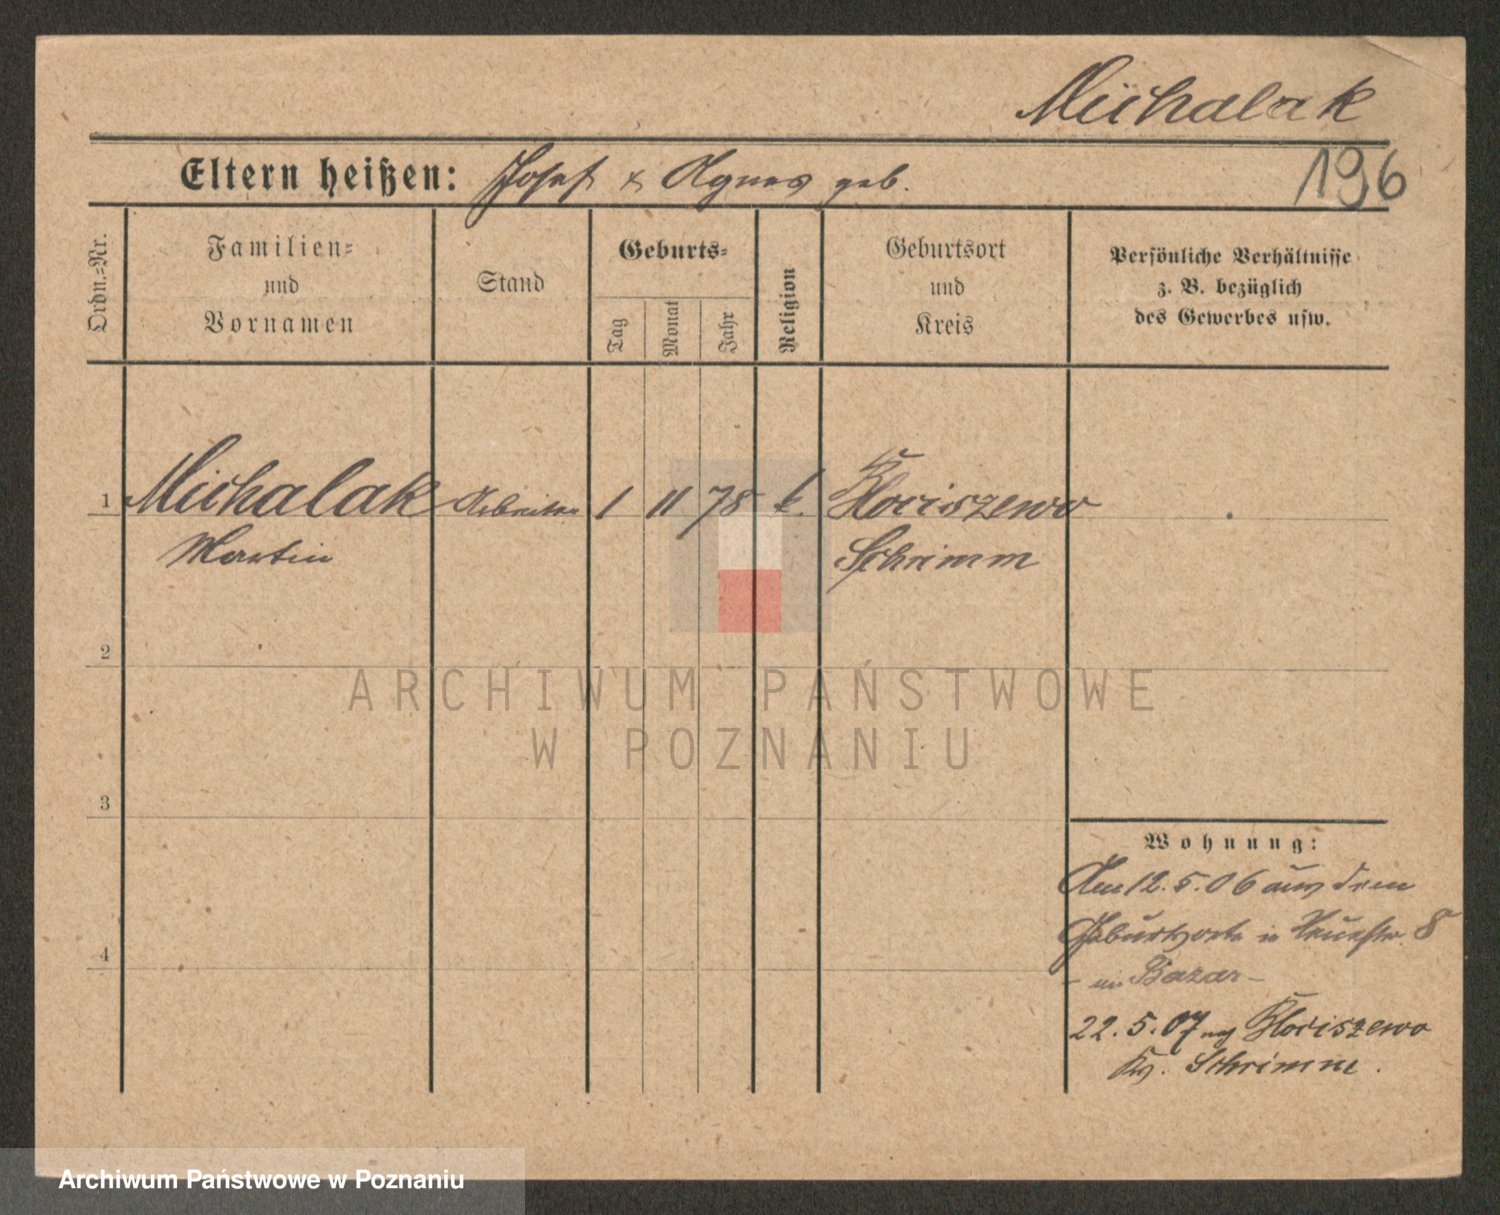 Michalak
196
Eltern heißen: Josef & Agnes geb.
Ordn.-Nr.
Familien-
und
Vornamen
Stand
Geburts-
Tag
Monat
Jahr
Religion
Geburtsort
und
Kreis
Persönliche Verhältnisse
z. B. bezüglich
des Gewerbes usw.
1 Michalak Arbeiter 1 11 78 k. Kłociszewo
Martin Schrimm
2
ARCHIWUM PAŃSTWOWE
W POZNANIU
3
4
Wohnung:
Am 12.5.06 aus dem
Geburtsorte in Neuestr. 8
- im Bazar -
22.5.07 Kłociszewo
Kr. Schrimm.
Archiwum Państwowe w Poznaniu